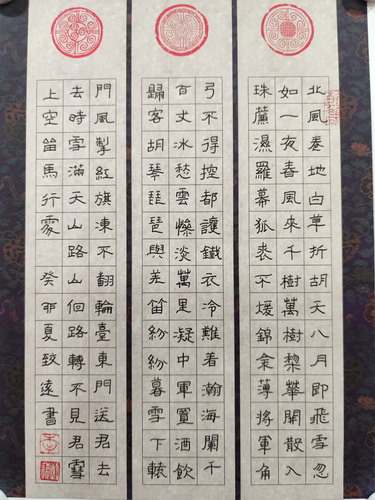 北風卷地白草折胡天八月即飛雪忽
如一夜春風來千樹萬樹棃華開散入
珠簾濕羅幕狐裘不煖錦衾薄將軍角
弓不得控都護鐵衣冷難着瀚海闌千
百丈冰愁雲慘淡萬里凝中軍置酒飲
歸客胡琴琵琶與羌笛紛紛暮雪下轅
門風掣紅旗凍不翻輪臺東門送君去
去時雪滿天山路山佪路轉不見君雪
上空留馬行處 癸卯夏致遠書